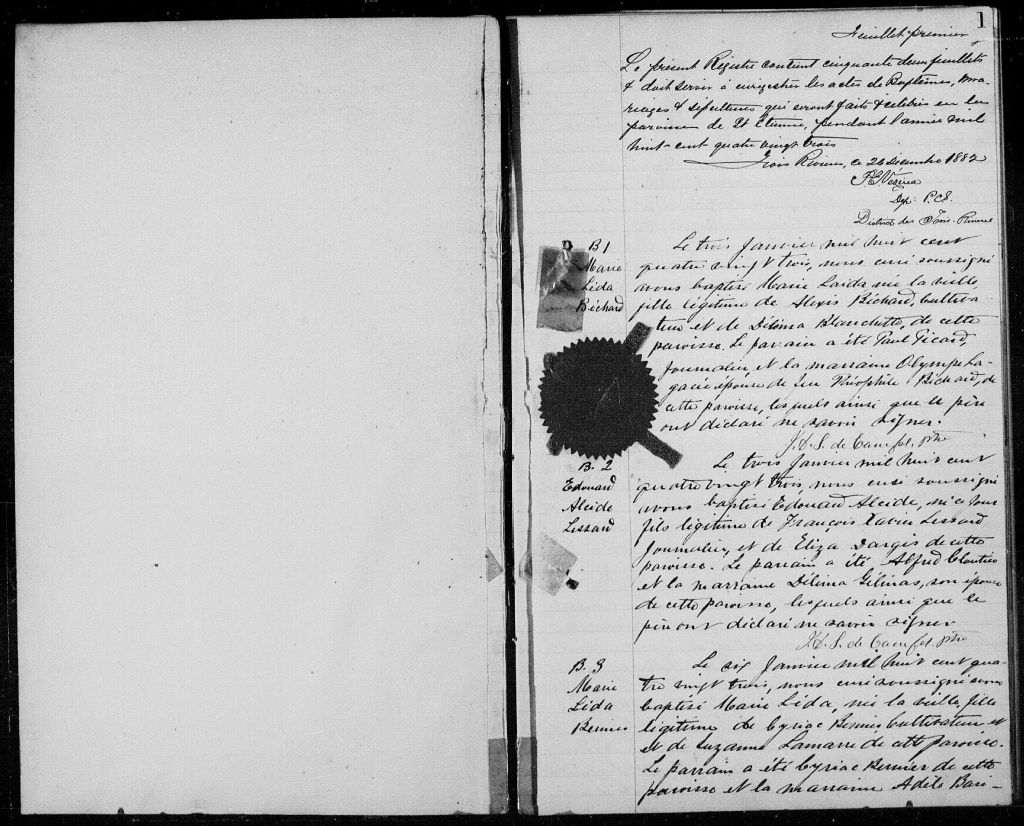 1
Feuillet premier
Le présent Registre contient cinquante deux feuillets
& doit servir à enregistrer les actes de Baptêmes, ma-
riages & sépultures qui seront faits & célébrés en la
paroisse de St Etienne, pendant l'année mil
huit-cent quatre vingt trois
Trois Rivières, ce 26 Décembre 1882
Dep. P.C.S.
District des Trois-Rivières
B 1
Marie
Lida
Béchard
Le trois Janvier mil huit cent
quatre vingt trois, nous curé soussigné
avons baptisé Marie Laida née la veille,
fille légitime de Alexis Béchard, cultiva-
teur et de Délima Blanchette, de cette
paroisse. Le parrain a été Paul Picard,
journalier, et la marraine Olympe La-
gacée épouse de feu Théophile Béchard, de
cette paroisse, lesquels ainsi que le père
ont déclaré ne savoir signer.
J. D. S. de Caufel, ptre
B. 2
Edouard
Alcide
Lessard
Le trois Janvier mil huit cent
quatre vingt trois, nous curé soussigné
avons baptisé Edouard Alcide, né ce jour
fils légitime de François Xavier Lessard
journalier, et de Eliza Dargis de cette
paroisse. Le parrain a été Alfred Cloutier
et la marraine Délima Gélinas, son épouse
de cette paroisse, lesquels ainsi que le
père ont déclaré ne savoir signer
J. D. S. de Caufel, ptre
B. 3
Marie
Lida
Bernier
Le six Janvier mil huit cent qua-
tre vingt trois, nous curé soussigné avons
baptisé Marie Lida, née la veille, fille
légitime de Cyriac Bernier cultivateur et
et de Suzanne Lamarre de cette paroisse.
Le parrain a été Cyriac Bernier de cette
paroisse et la marraine Adèle Bari-